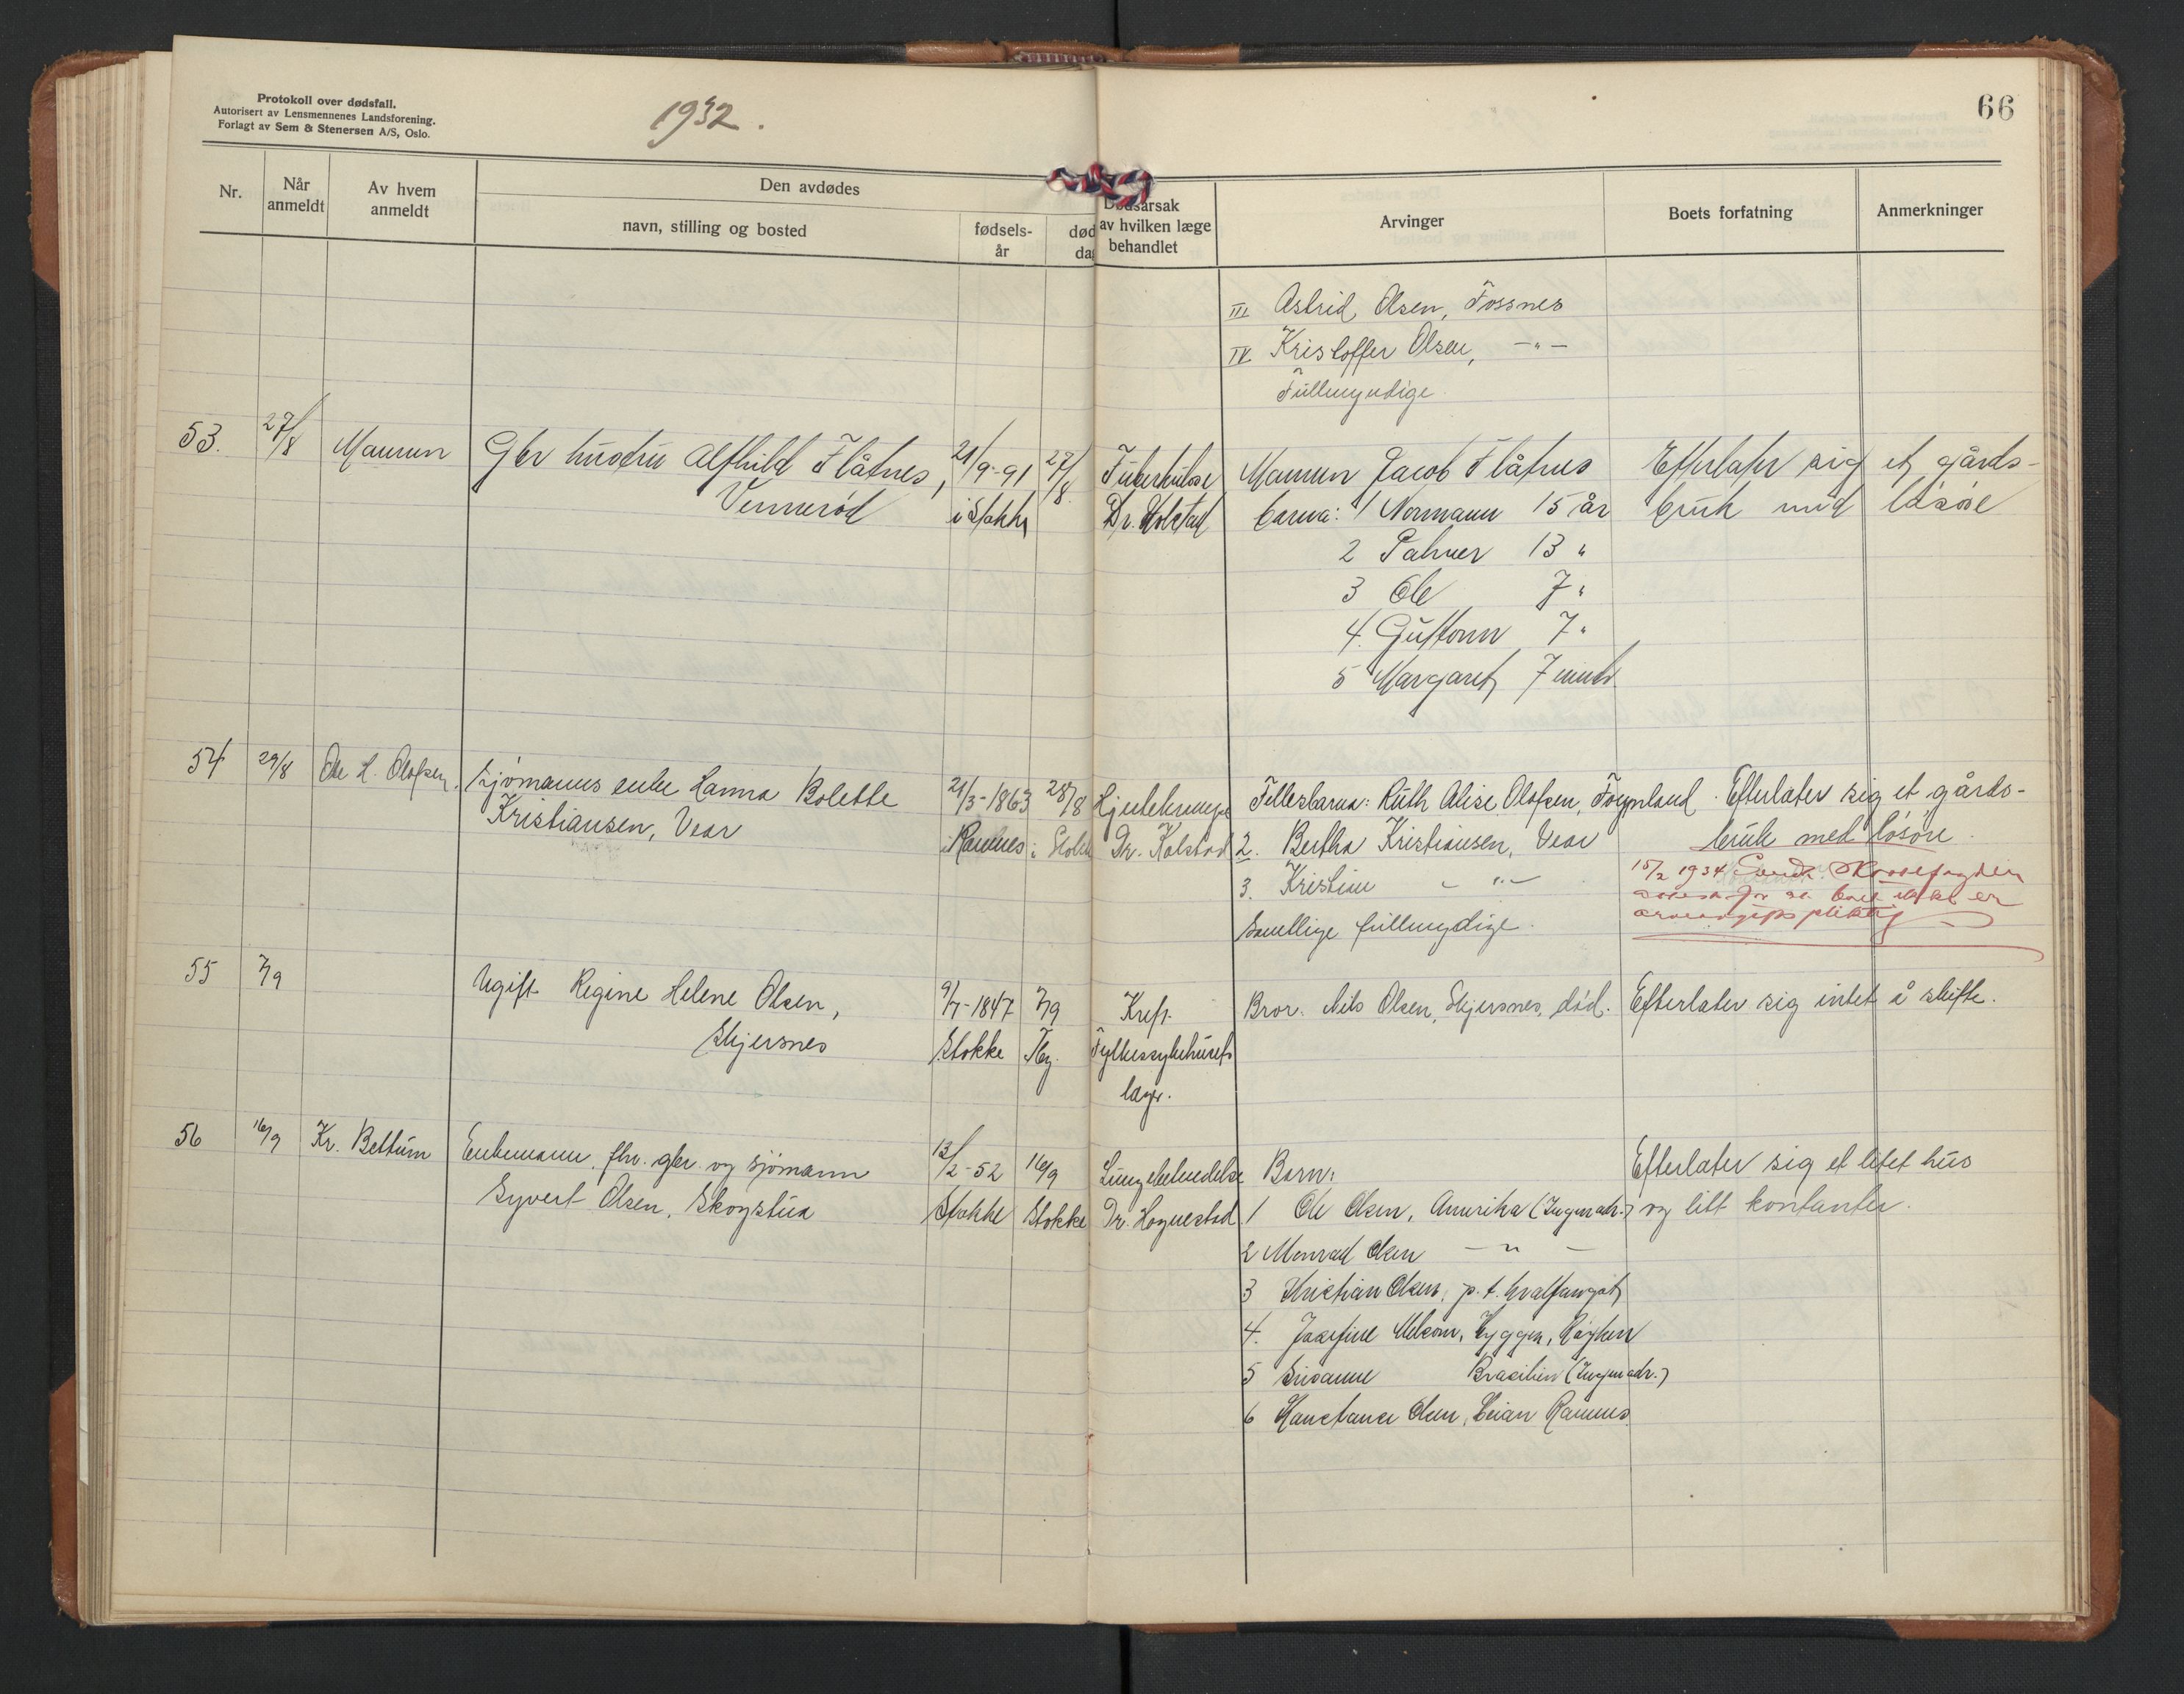 Protokoll over dødsfall.
Autorisert av Lensmennenes Landsforening.
Forlagt av Sem & Stenersen A/S, Oslo.
1932.
66
Nr.
Når anmeldt
Av hvem anmeldt
Den avdødes
navn, stilling og bosted
fødselsår
død
da
Dødsårsak
av hvilken læge
behandlet
Arvinger
Boets forfatning
Anmerkninger
III Astrid Olsen, Fossnes
IV Kristoffer Olsen, -"-
Fullmyndige.
53. 27/8 Mannen Gbr hustru Alfhild Flåtnes, 21/9-91 27/8. Tuberkulose Mannen Jacob Flåtnes Efterlater sig et gårds-
Vennerød i Stokke Dr. Kolstad barna: 1 Normann 15 år bruk med løsøre
2 Palmer 13 "
3 Ole 7 "
4. Guttorm 7 "
5 Margaret 7 mnd.
54 29/8 Ole H. Olofsen. Sjømanns enke Hanna Bolette 21/3-1863 28/8 Hjertekrampe Fellesbarna: Ruth Alise Olofsen, Føynland. Efterlater sig et gårds-
Kristiansen, Vear i Ramnes i Stokke Dr. Kolstad 2. Bertha Kristiansen, Vear bruk med løsøre.
3. Kristine - " -
Samtlige fullmydige.
15/2 1934 Sendt Skorsefogden
at boet ikke er
arveavgiftspliktig
55 7/9 Ugift Regine Helene Olsen, 9/7-1847 7/9 Kreft. Bror: Nils Olsen, Skjersnes, død. Efterlater sig intet å skifte.
Skjersnes Stokke Tbg. Fylkessykehusets
læge.
56 16/9 Kr. Bettum Enkemann, fhv. gbr. og sjømann 13/2-52 16/9 Lungebetendelse Barn: Efterlater sig et litet hus
Syvert Olsen, Skogstua Stokke Stokke Dr. Hognestad 1 Ole Olsen, Amerika (Ingen adr.) og litt kontanter.
2 Monrad Olsen - " -
3 Kristian Olsen, p.t. hvalfangst
4. Josefine Melsom, Hyggen, Røyken
5 Susanne Brasilien (Ingen adr.)
6 Konstanse Olsen, Ramnes